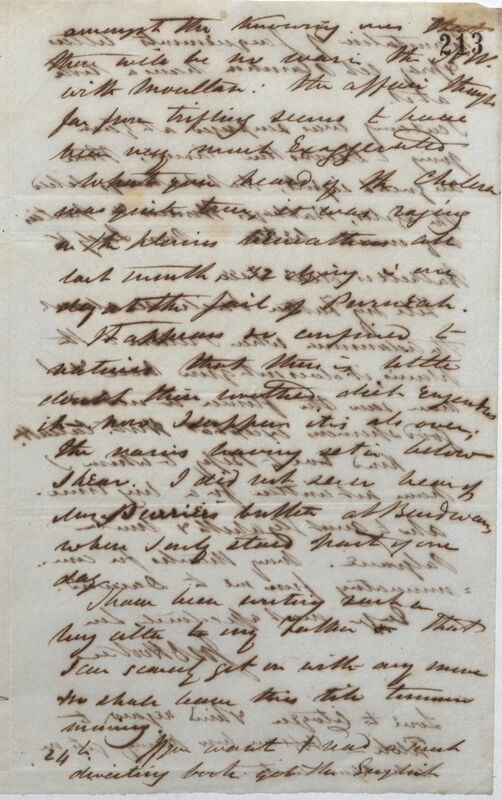 213
amongst the knowing ones that
there will be no war in the N.W.
with Mooltan: the affair though
far from trifling seems to have
been very much exaggerated
What you heard of the Cholera
was quite true, it was raging
in the plains beneath us all
last month 32 dying in one
day at the Jail of Purneah.
It appears so confined to
natives that there is little
doubt their diet
it now I suppose it is all over,
the rains having set in below
I hear. I did not even hear of
Mr. at Burdwan,
where I only staid part of one
day.
I have been writing such a
long letter to my Father that
I can scarcely get on with any more
so shall leave this till tomorrow
morning
24th If you want to read a most
diverting book get the English